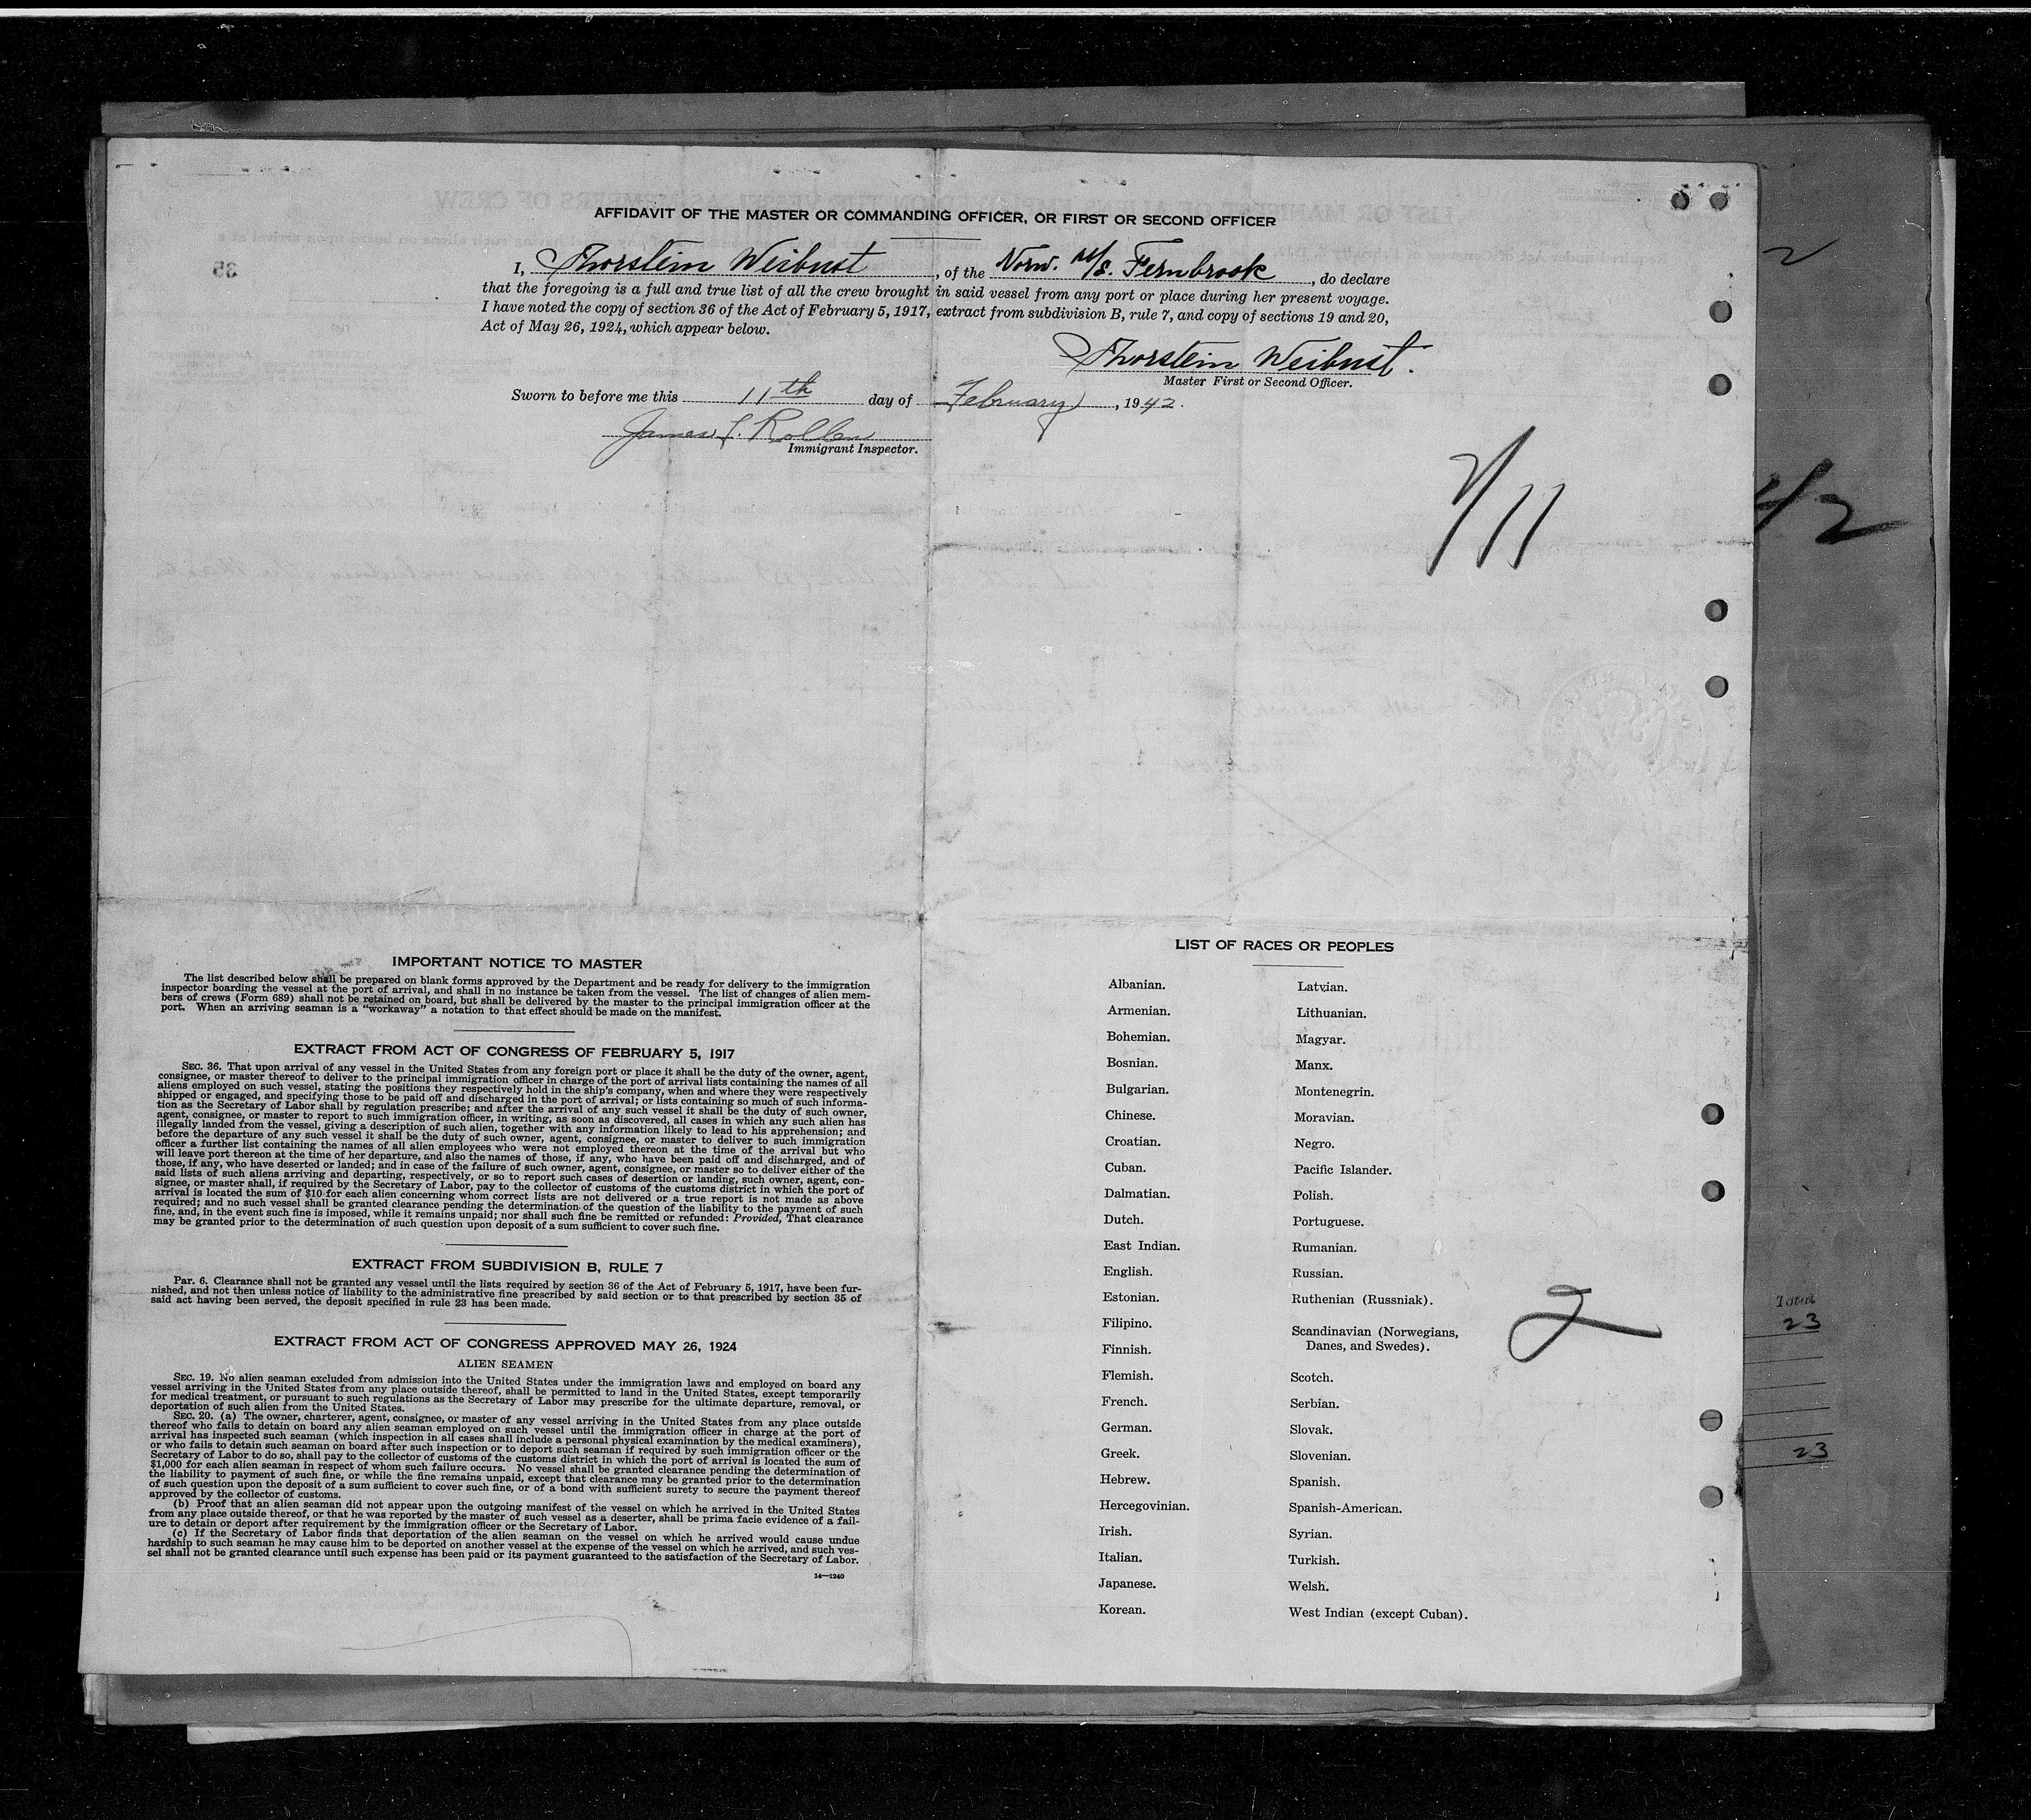 AFFIDAVIT OF THE MASTER OR COMMANDING OFFICER, OR FIRST OR SECOND OFFICER
I, Thorstein Weibust, of the Norw. M/S. Fernbrook, do declare
that the foregoing is a full and true list of all the crew brought in said vessel from any port or place during her present voyage.
I have noted the copy of section 36 of the Act of February 5, 1917, extract from subdivision B, rule 7, and copy of sections 19 and 20,
Act of May 26, 1924, which appear below.
Thorstein Weibust.
Master First or Second Officer.
Sworn to before me this 11th day of February, 1942.
James
Immigrant Inspector.
2/11
2
42
IMPORTANT NOTICE TO MASTER
The list described below shall be prepared on blank forms approved by the Department and be ready for delivery to the immigration
inspector boarding the vessel at the port of arrival, and shall in no instance be taken from the vessel. The list of changes of alien mem-
bers of crews (Form 689) shall not be retained on board, but shall be delivered by the master to the principal immigration officer at the
port. When an arriving seaman is a "workaway" a notation to that effect should be made on the manifest.
EXTRACT FROM ACT OF CONGRESS OF FEBRUARY 5, 1917
SEC. 36. That upon arrival of any vessel in the United States from any foreign port or place it shall be the duty of the owner, agent,
consignee, or master thereof to deliver to the principal immigration officer in charge of the port of arrival lists containing the names of all
aliens employed on such vessel, stating the positions they respectively hold in the ship's company, when and where they were respectively
shipped or engaged, and specifying those to be paid off and discharged in the port of arrival; or lists containing so much of such informa-
tion as the Secretary of Labor shall by regulation prescribe; and after the arrival of any such vessel it shall be the duty of such owner,
agent, consignee, or master to report to such immigration officer, in writing, as soon as discovered, all cases in which any such alien has
illegally landed from the vessel, giving a description of such alien, together with any information likely to lead to his apprehension; and
before the departure of any such vessel it shall be the duty of such owner, agent, consignee, or master to deliver to such immigration
officer a further list containing the names of all alien employees who were not employed thereon at the time of the arrival but who
will leave port thereon at the time of her departure, and also the names of those, if any, who have been paid off and discharged, and of
those, if any, who have deserted or landed; and in case of the failure of such owner, agent, consignee, or master so to deliver either of the
said lists of such aliens arriving and departing, respectively, or so to report such cases of desertion or landing, such owner, agent, con-
signee, or master shall, if required by the Secretary of Labor, pay to the collector of customs of the customs district in which the port of
arrival is located the sum of $10 for each alien concerning whom correct lists are not delivered or a true report is not made as above
required; and no such vessel shall be granted clearance pending the determination of the question of the liability to the payment of such
fine, and, in the event such fine is imposed, while it remains unpaid; nor shall such fine be remitted or refunded: Provided, That clearance
may be granted prior to the determination of such question upon deposit of a sum sufficient to cover such fine.
EXTRACT FROM SUBDIVISION B, RULE 7
Par. 6. Clearance shall not be granted any vessel until the lists required by section 36 of the Act of February 5, 1917, have been fur-
nished, and not then unless notice of liability to the administrative fine prescribed by said section or to that prescribed by section 35 of
said act having been served, the deposit specified in rule 23 has been made.
EXTRACT FROM ACT OF CONGRESS APPROVED MAY 26, 1924
ALIEN SEAMEN
SEC. 19. No alien seaman excluded from admission into the United States under the immigration laws and employed on board any
vessel arriving in the United States from any place outside thereof, shall be permitted to land in the United States, except temporarily
for medical treatment, or pursuant to such regulations as the Secretary of Labor may prescribe for the ultimate departure, removal, or
deportation of such alien from the United States.
SEC. 20. (a) The owner, charterer, agent, consignee, or master of any vessel arriving in the United States from any place outside
thereof who fails to detain on board any alien seaman employed on such vessel until the immigration officer in charge at the port of
arrival has inspected such seaman (which inspection in all cases shall include a personal physical examination by the medical examiners),
or who fails to detain such seaman on board after such inspection or to deport such seaman if required by such immigration officer or the
Secretary of Labor to do so, shall pay to the collector of customs of the customs district in which the port of arrival is located the sum of
$1,000 for each alien seaman in respect of whom such failure occurs. No vessel shall be granted clearance pending the determination of
the liability to payment of such fine, or while the fine remains unpaid, except that clearance may be granted prior to the determination
of such question upon the deposit of a sum sufficient to cover such fine, or of a bond with sufficient surety to secure the payment thereof
approved by the collector of customs.
(b) Proof that an alien seaman did not appear upon the outgoing manifest of the vessel on which he arrived in the United States
from any place outside thereof, or that he was reported by the master of such vessel as a deserter, shall be prima facie evidence of a fail-
ure to detain or deport after requirement by the immigration officer or the Secretary of Labor.
(c) If the Secretary of Labor finds that deportation of the alien seaman on the vessel on which he arrived would cause undue
hardship to such seaman he may cause him to be deported on another vessel at the expense of the vessel on which he arrived, and such ves-
sel shall not be granted clearance until such expense has been paid or its payment guaranteed to the satisfaction of the Secretary of Labor.
14—1240
LIST OF RACES OR PEOPLES
Albanian.
Armenian.
Bohemian.
Bosnian.
Bulgarian.
Chinese.
Croatian.
Cuban.
Dalmatian.
Dutch.
East Indian.
English.
Estonian.
Filipino.
Finnish.
Flemish.
French.
German.
Greek.
Hebrew.
Hercegovinian.
Irish.
Italian.
Japanese.
Korean.
Latvian.
Lithuanian.
Magyar.
Manx.
Montenegrin.
Moravian.
Negro.
Pacific Islander.
Polish.
Portuguese.
Rumanian.
Russian.
Ruthenian (Russniak).
Scandinavian (Norwegians,
Danes, and Swedes).
Scotch.
Serbian.
Slovak.
Slovenian.
Spanish.
Spanish-American.
Syrian.
Turkish.
Welsh.
West Indian (except Cuban).
2
Total
23
23